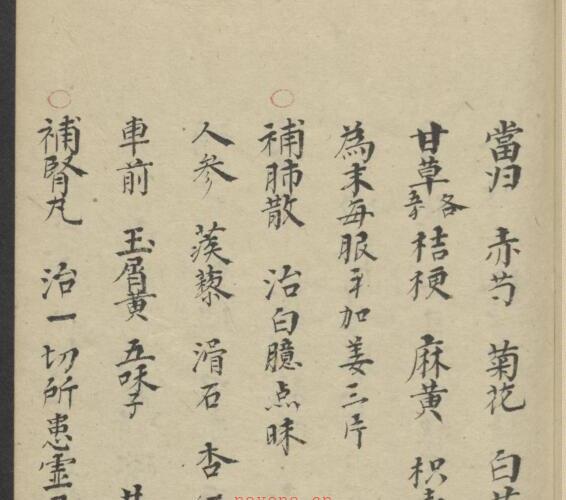 當归 赤芍 菊花 白
甘草各 桔梗 麻黄 枳
為末每服 加姜三片
補肺散 治白臆点昧
人参 蒺藜 滑石 杏
車前 玉屑黄 五味子
補腎丸 治一切所患虚